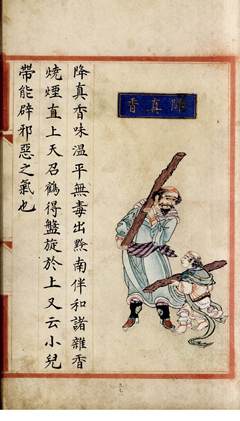 降真香
降真香味溫平無毒出黔南伴和諸雜香
燒煙直上天召鶴得盤旋於上又云小兒
帶能辟邪惡之氣也